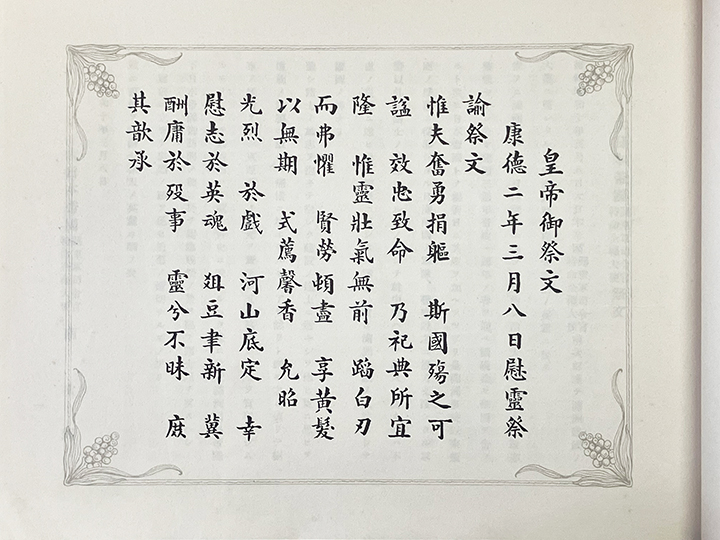 皇帝御祭文
康德二年三月八日慰靈祭
諭祭文
惟夫奮勇捐軀　斯國殤之可
諡　效忠致命　乃祀典所宜
隆　惟靈壯氣無前　蹈白刃
而弗懼　賢勞頓盡　享黃髮
以無期　式薦馨香　允昭
光烈　於戲　河山底定　幸
慰志於英魂　俎豆聿新　冀
酬庸於歿事　靈兮不昧　庶
其歆承